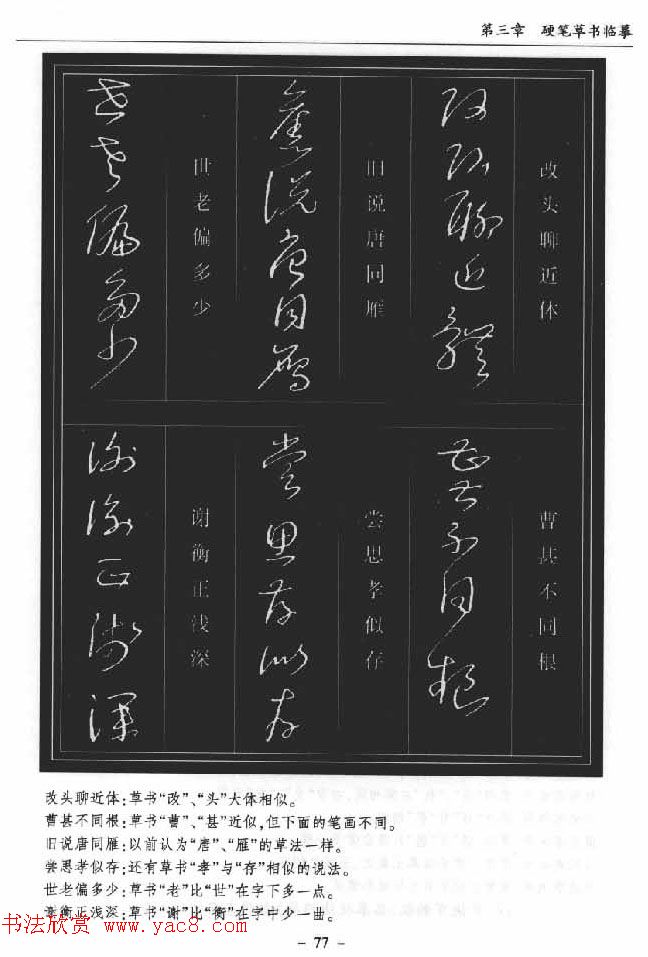 第三章 硬笔草书临摹
改头聊近体
曹甚不同根
旧说唐同雁
尝思孝似存
世老偏多少
谢衡正浅深
改头聊近体:草书“改”、“头”大体相似。
曹甚不同根:草书“曹”、“甚”近似,但下面的笔画不同。
旧说唐同雁:以前认为“唐”、“雁”的草法一样。
尝思孝似存:还有草书“孝”与“存”相似的说法。
世老偏多少:草书“老”比“世”在字下多一点。
谢衡正浅深:草书“谢”比“衡”在字中少一曲。
书法欣赏 www.yac8.com
- 77 -